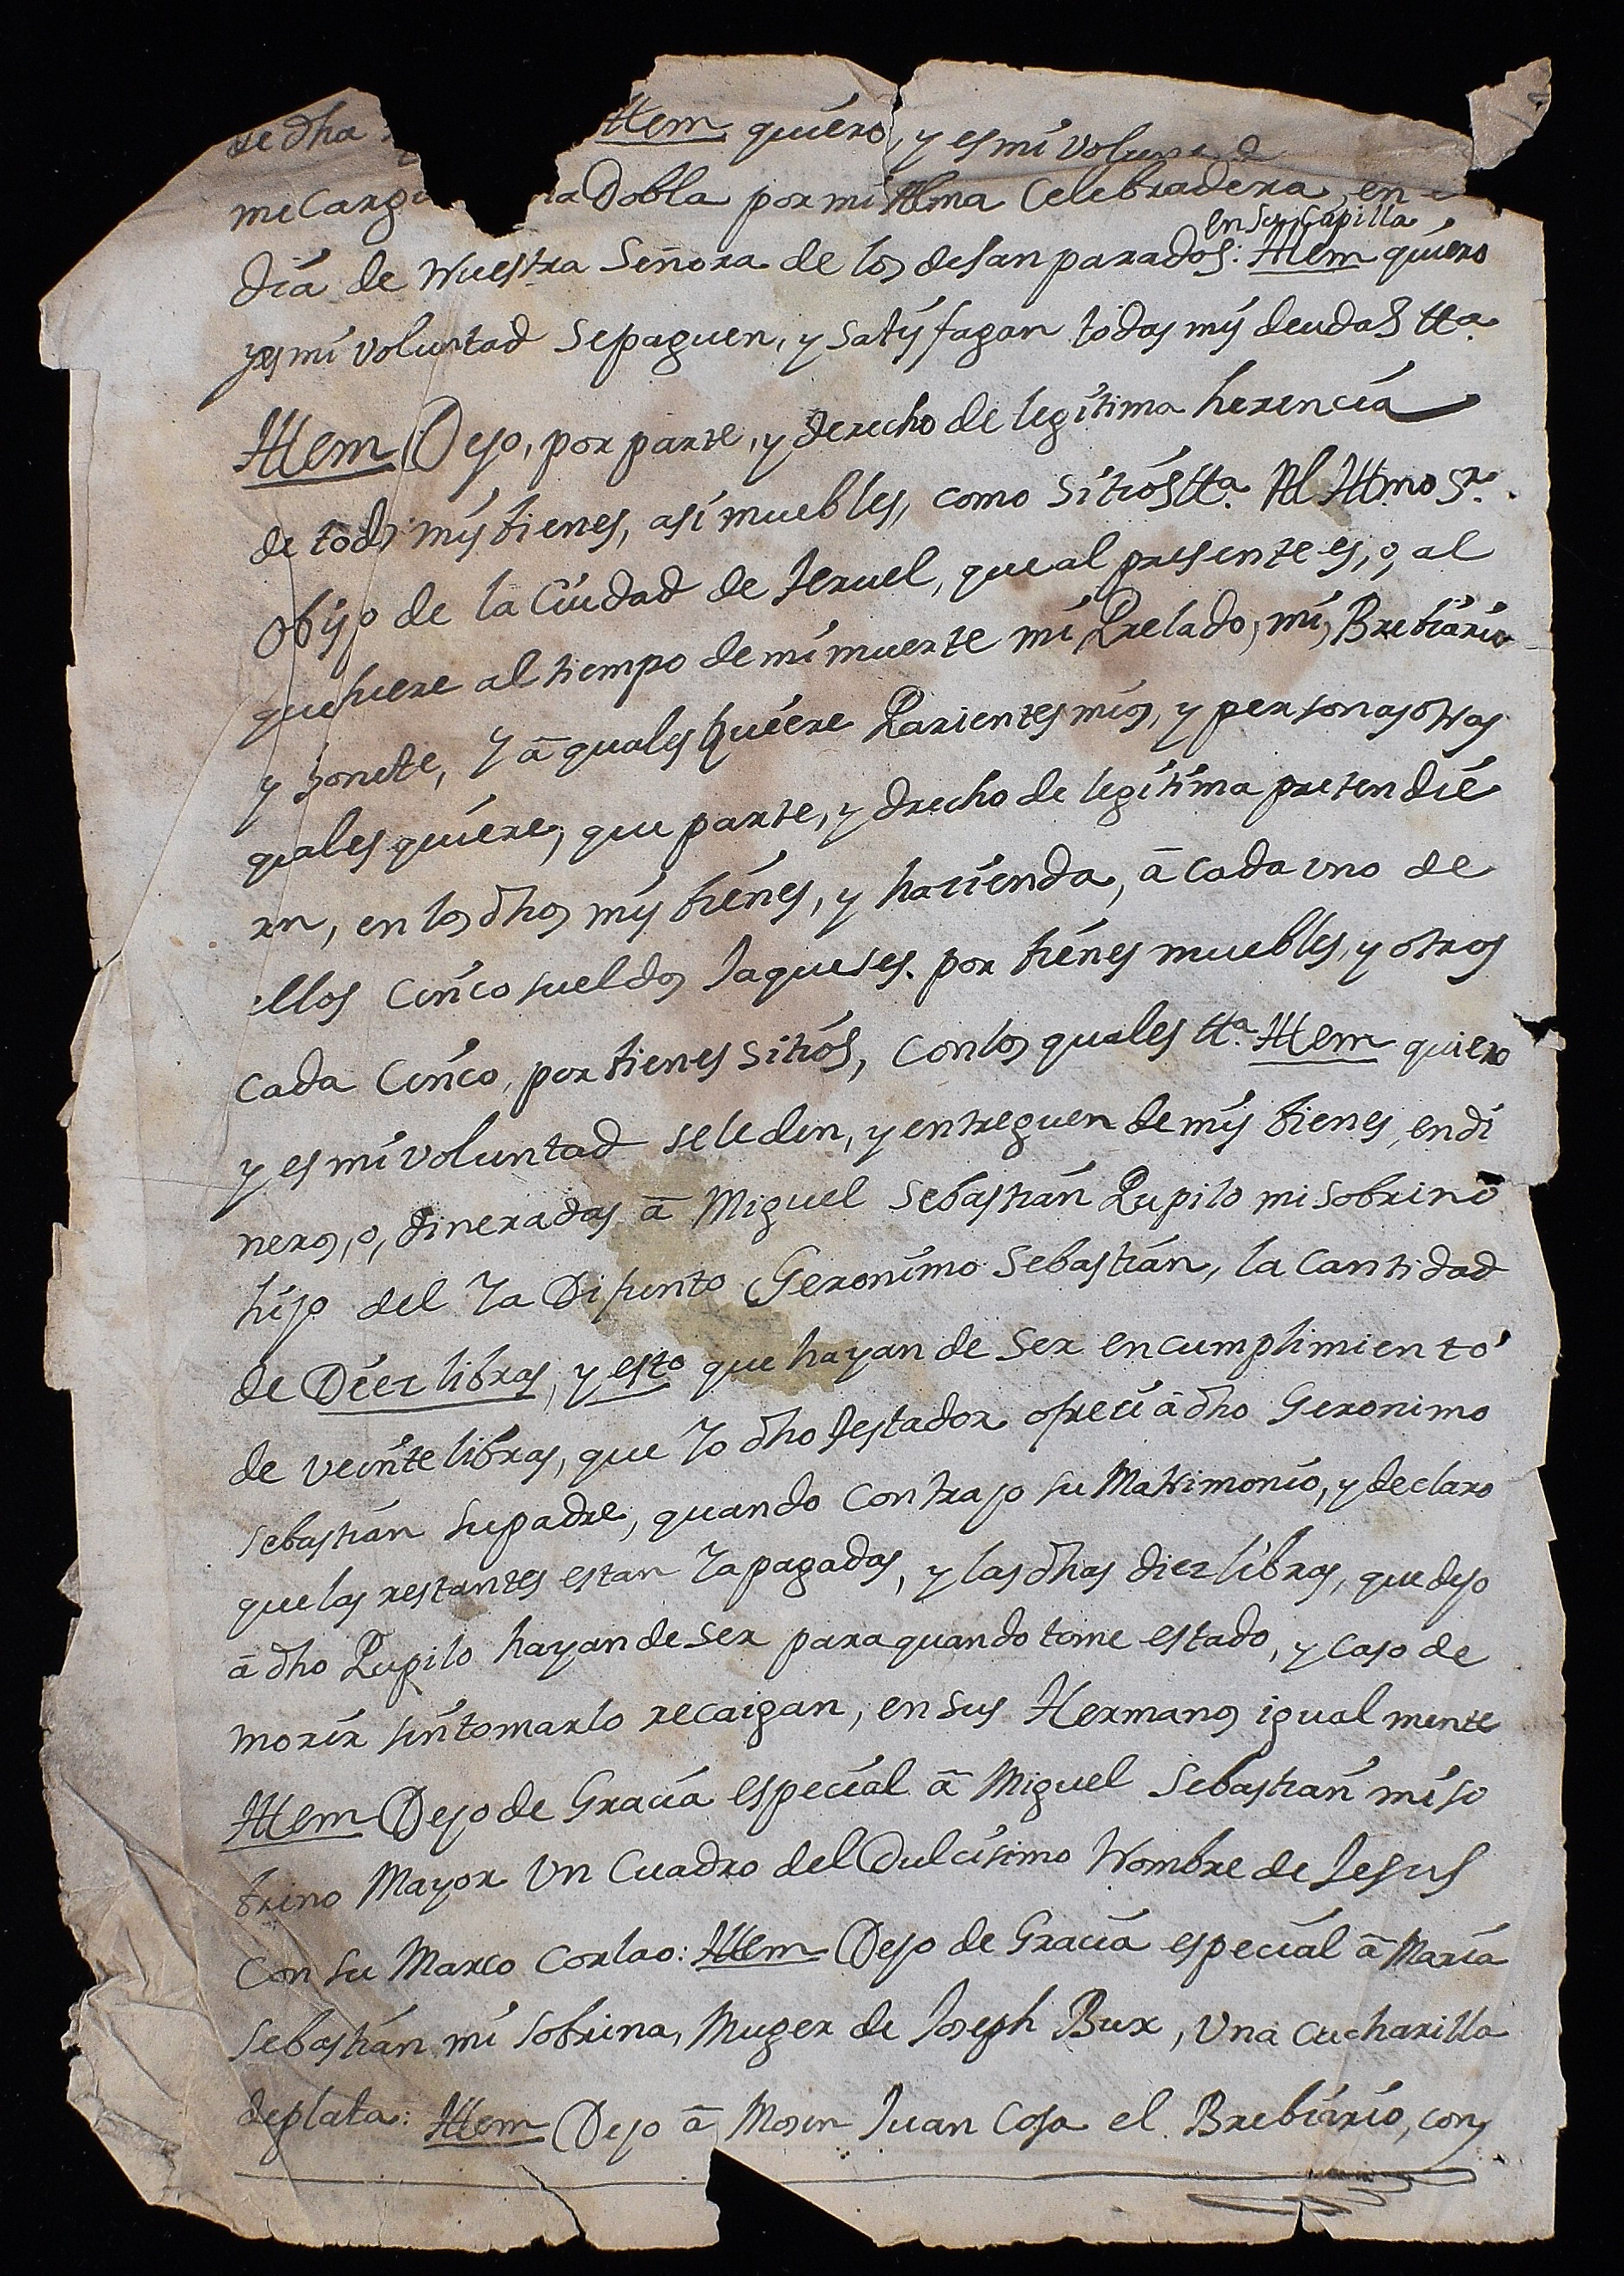 se dha Ittem quiero, y es mi volun d
me Carg na Dobla por mi Alma Celebradera, en
en su Capilla
día de Nuestra Señora de los desanparados: Ittem quiero
y es mi voluntad se paguen, y satisfagan todas mis deudas tta.
Ittem Dejo, por parte, y derecho de legítima herencia
de todos mis bienes, así muebles, como sitiós tta. Al Ittmo Sr.
Obispo de la Ciudad de Teruel, que al presente es, o, al
que fuere al tiempo de mi muerte mi Prelado, mi Brebiario
y bonete, Y à quales quiere Parientes mios, y personas otras
quales quiere, que parte, y drecho de legítima pretendié
rn, en los dhos mis biénes, y hacienda, à cada uno de
ellos Cinco sueldos Jaqueses. por biénes muebles, y otros
cada Cinco, por bienes sitiós, con los quales tta. Ittem quiero
y es mi voluntad se le den, y entreguen de mis bienes, en di
neros, o, dineradas à Miguel Sebastián Pupilo mi sobrino
hijo del Ya Difunto Geronimo Sebastián, la Cantidad
de Diez libras, y esto que hayan de ser en cumplimiento
de veinte libras, que Yo dho Testador ofrecí à dho Geronimo
Sebastián su padre, quando contrajo su Matrimonio, y declaro
que las restantes estan Ya pagadas, y las dhas diez libras, que dejo
à dho Pupilo hayan de ser para quando tome estado, y caso de
morir sin tomarlo recaigan, en sus Hermanos igual mente
Ittem Dejo de Gracia especial à Miguel Sebastián mi so
brino Mayor Un Cuadro del Dulcísimo Nombre de Jesus
Con su Marco Corlao: Ittem Dejo de Gracia especial à María
Sebastián mi Sobrina, Muger de Joseph Bux, Una cucharilla
de plata: Ittem Dejo à Mosen Juan Cosa el Brebiário, con